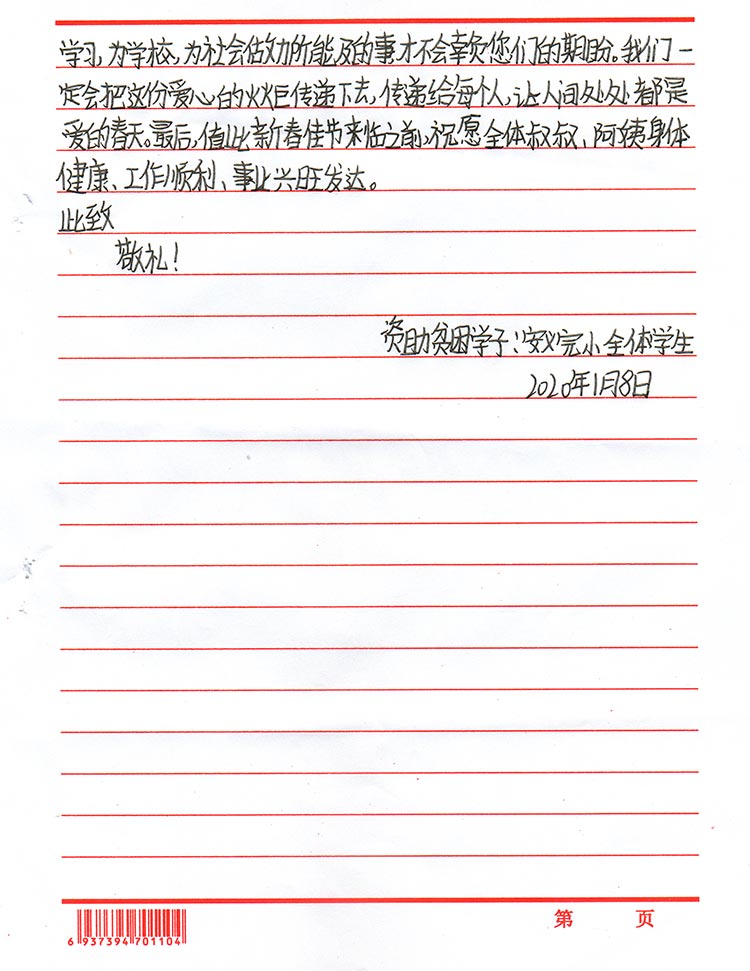 学习,为学校,为社会做力所能及的事才不会辜负您们的期盼。我们一
定会把这份爱心的火炬传递下去,传递给每个人,让人间处处都是
爱的春天。最后,值此新春佳节来临之前,祝愿全体叔叔、阿姨身体
健康、工作顺利、事业兴旺发达。
此致
敬礼!
资助贫困学子:安义完小全体学生
2020年1月8日
第 页
6 937394 701104